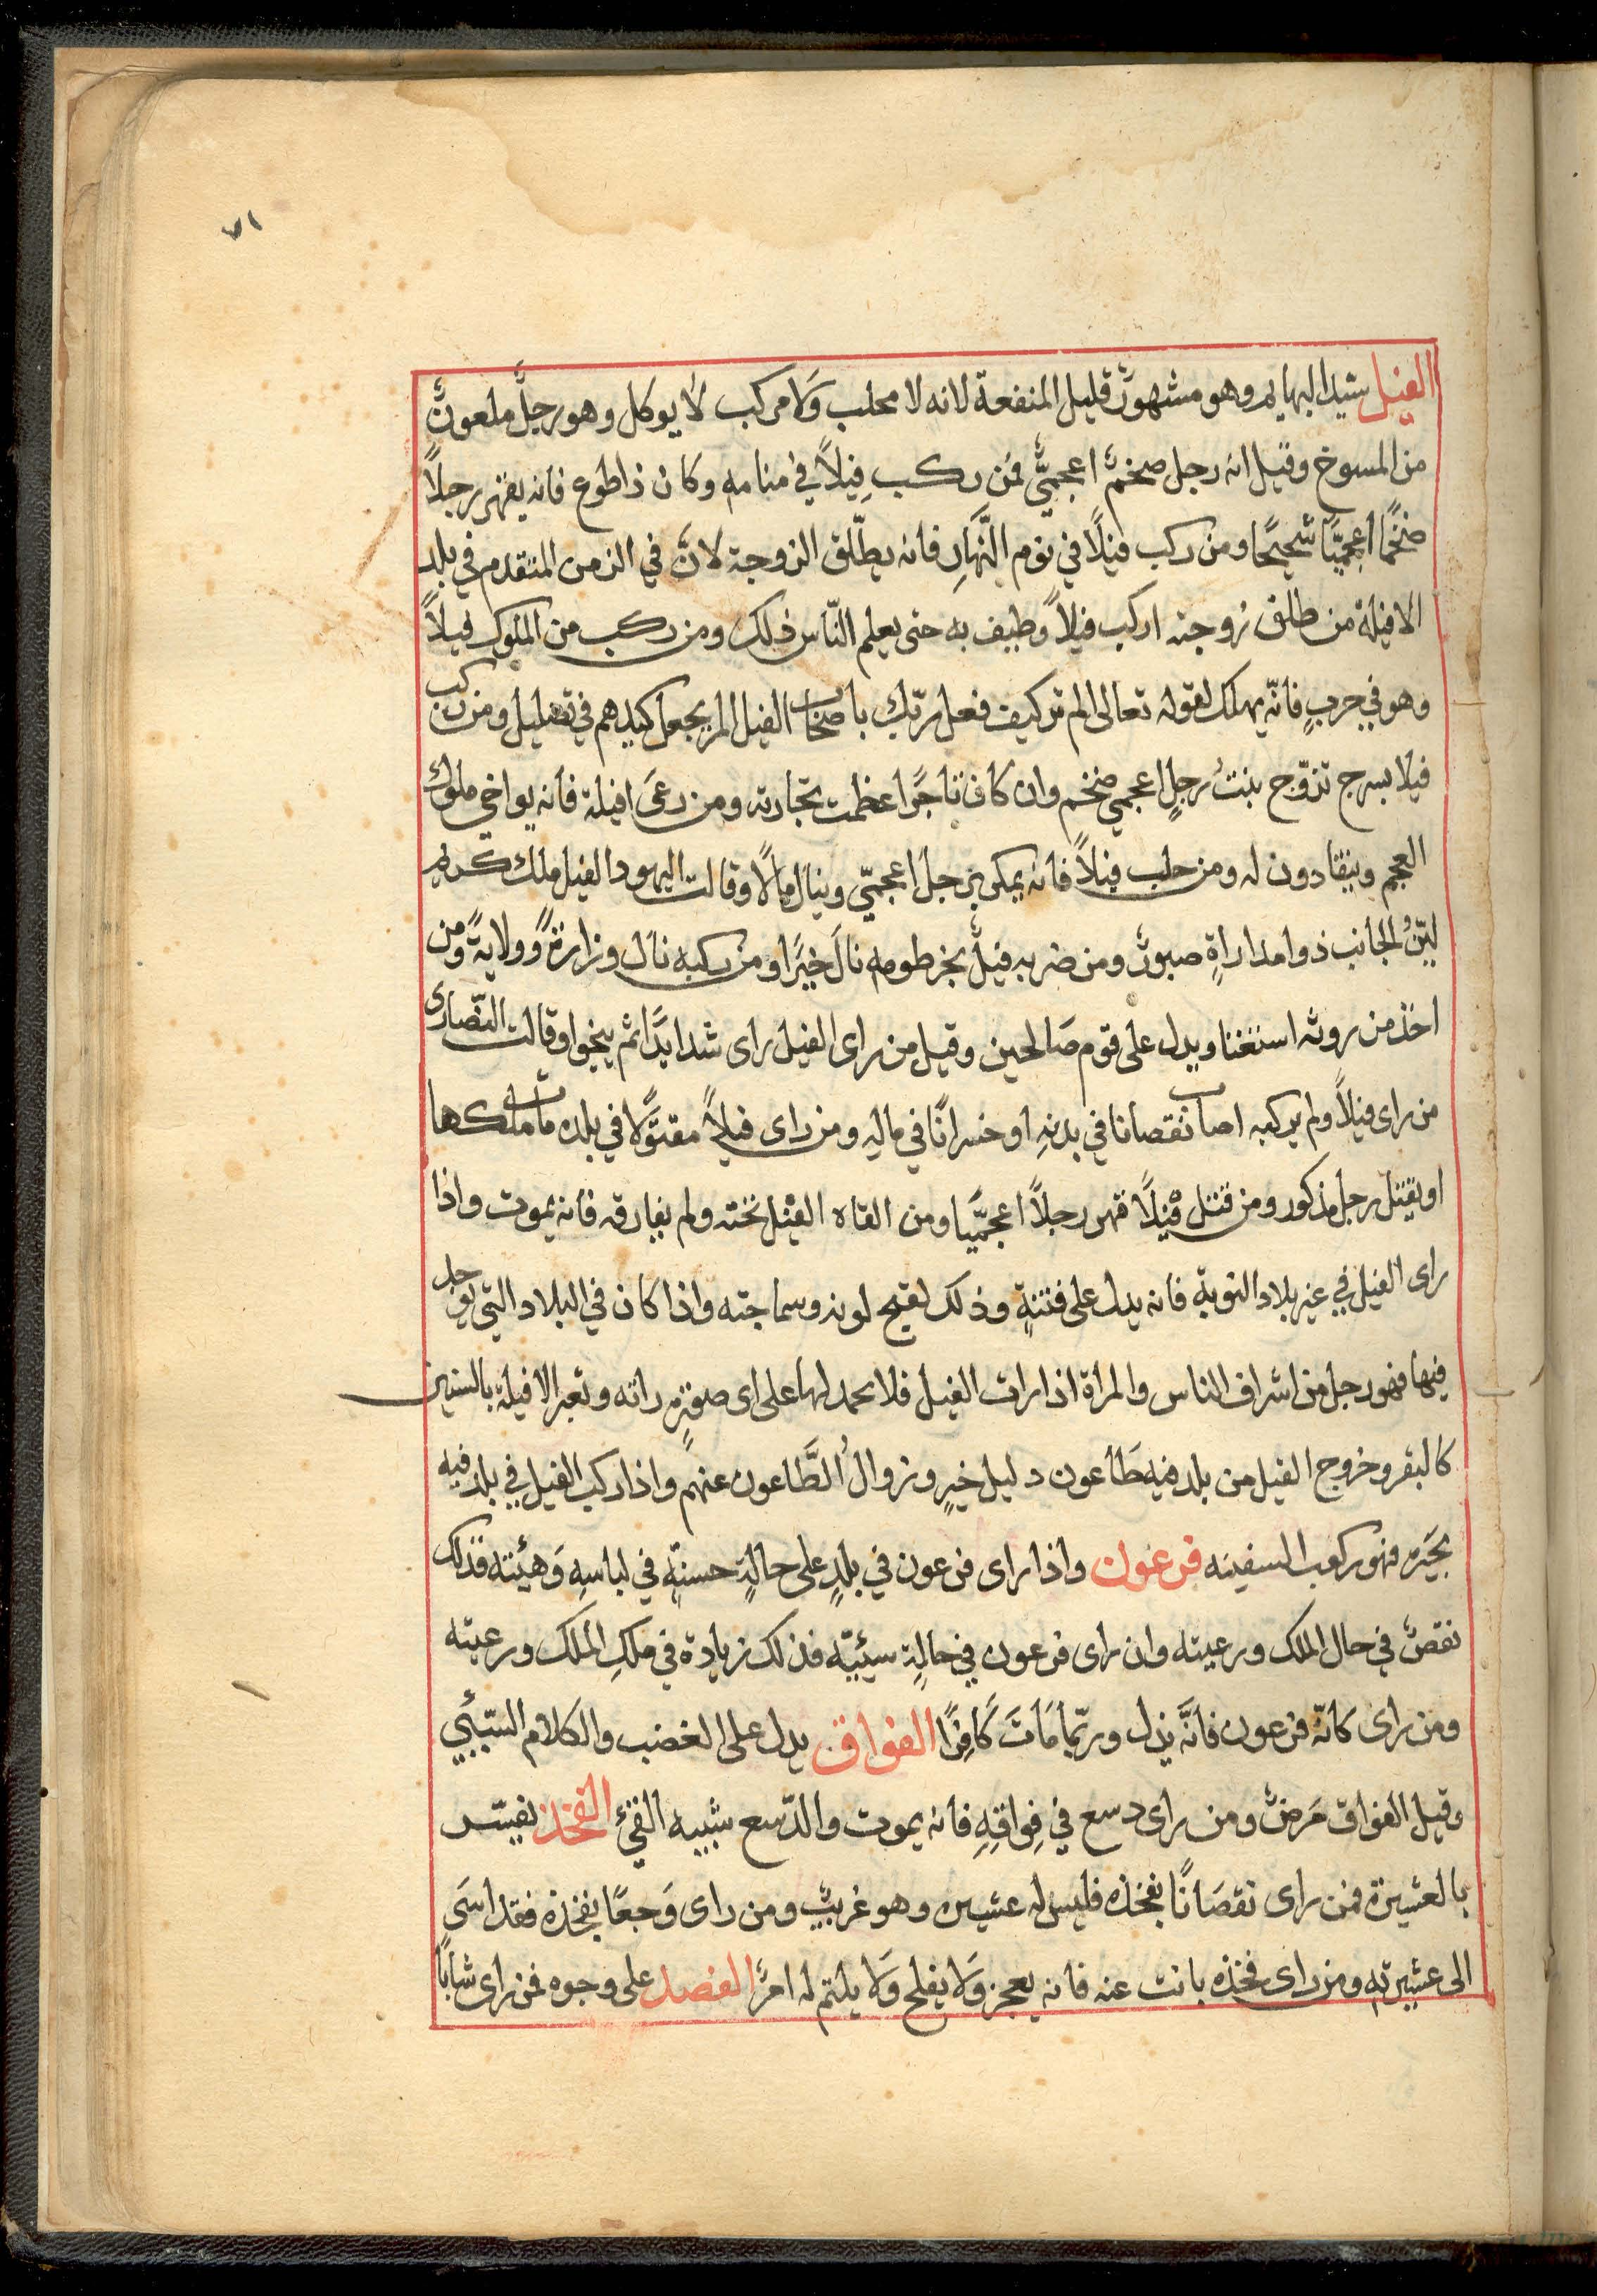 ٧١
الفيل سيد البهايم وهو مشهور قليل المنفعة لانه لا محلب ولا مركب لا يوكل وهو رجل ملعون
من المسوخ وقيل انه رجل ضخم اعجمي فمن ركب فيلاً في منامه وكان ذا طوع فانه يقهر رجلاً
ضخمًا اعجميًّا شحيحًا ومن ركب فيلاً في نوم النَّهَارِ فانه يطلّق الزوجة لانّ في الزمن المتقدم في بلد
الافيلة من طلق زوجته اركب فيلاً وطيف به حتى يعلم النّاس ذلك ومن ركب من الملوك فيلاً
وهو في حربٍ فانّه يهلك لقوله تعالى الم تر كيف فعل ربّك باصحاب الفيل الم يجعل كيدهم في تضليل ومن ركب
فيلا بسرج تزوّج بنتُ رجلٍ اعجمي ضخم وان كان تاجرًا عظمت تجارته ومن رعَى افيلة فانه يواخي ملوك
العجم وينقادون له ومن حلب فيلاً فانه يمكر برجل اعجميّ وينال مالاً وقالت اليهود الفيل ملك كريم
ليّنُ الجانب ذوا مداراةٍ صبورٌ ومن ضربه فيلٌ بخرطومه نالَ خيرًا ومن ركبه نال وزارةً وولايةً ومن
اخذ من روثه استغنا ويدل على قوم صَالحين وقيل من راى الفيل راى شدايدًا ثم ينجوا وقالت النّصارى
من راى فيلاً ولم يركبه اصاب نقصانا في بدنهِ او خسرانًا في مالهِ ومن راى فيلاً مقتولاً في بلده مات ملكها
او يقتل رجل مذكور ومن قتل فيلاً قهر رجلاً اعجميًّا ومن القاه الفيل تحته ولم يفارقه فانه يموت واذا
راى الفيل في غير بلاد النوبة فانه يدل على فتنةٍ وذلك لقبح لونه وسماجته واذا كان في البلاد التي يوجد
فيها فهو رجل من اشراف الناس والمراة اذا رات الفيل فلا يحمد لها على اى صفةٍ راته وتعبر الافيلة بالسنين
كالبقر وخروج الفيل من بلد فيه طَاعون دليل خيرٍ وزوالُ الطَّاعون عنهم واذا ركب الفيل في بلد فيه
بحيره فهو ركوب السفينه فرعون واذا راى فرعون في بلدٍ على حالةٍ حسنةٍ في لباسهِ وَهيئته فذلك
نقصٌ في حال الملك ورعيته وان راى فرعون في حالةٍ سيئيّه فذلك زيادة في ملكِ الملك ورعيته
ومن راى كانّه فرعون فانَّه يذل وربّما مَاتَ كَافِرًا الفواق يدل على الغضب والكلام السّيّئ
وقيل الفواق مَرضٌ ومن راى دسع في فِواقِهِ فانه يموت والدّسع شبيه القئ الفخذ تفسّر
بالعشيرة فمن راى نقصَانًا بفخذه فليس له عشيره وهو غريبٌ ومن راى وَجعًا بفخذه فقد اسَى
الى عشيرتهِ ومن راى فخذه بانت عنه فانه يعجز وَلا يفلح وَلا يلتم له امرٌ الفصد على وجوه فمن راى شابًا